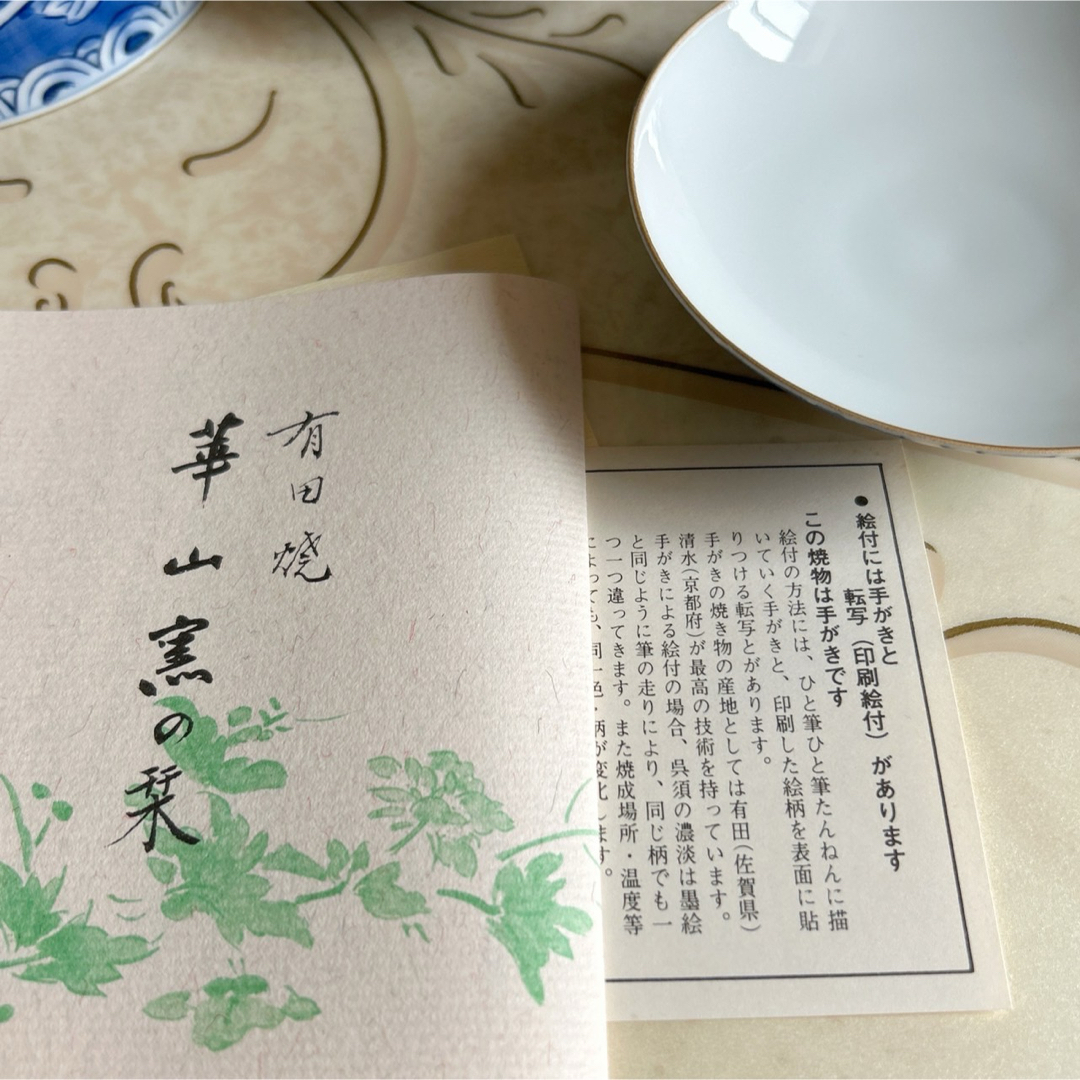 有田焼
華山窯の栞
●絵付には手がきと
転写（印刷絵付）があります
この焼物は手がきです
絵付の方法には、ひと筆ひと筆たんねんに描
いていく手がきと、印刷した絵柄を表面に貼
りつける転写とがあります。
手がきの焼き物の産地としては有田（佐賀県）
清水（京都府）が最高の技術を持っています。
手がきによる絵付の場合、呉須の濃淡は墨絵
と同じように筆の走りにより、同じ柄でも一
つ一つ違ってきます。また焼成場所・温度等
によっても、同一色・柄が変化します。